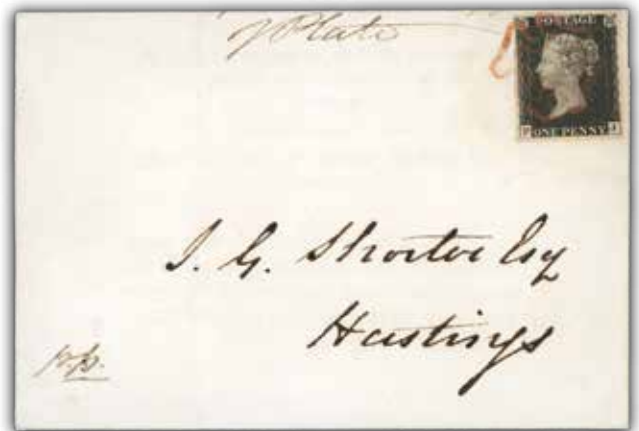 Plate
POSTAGE
ONE PENNY
J. G. Shorter Esq
Hastings